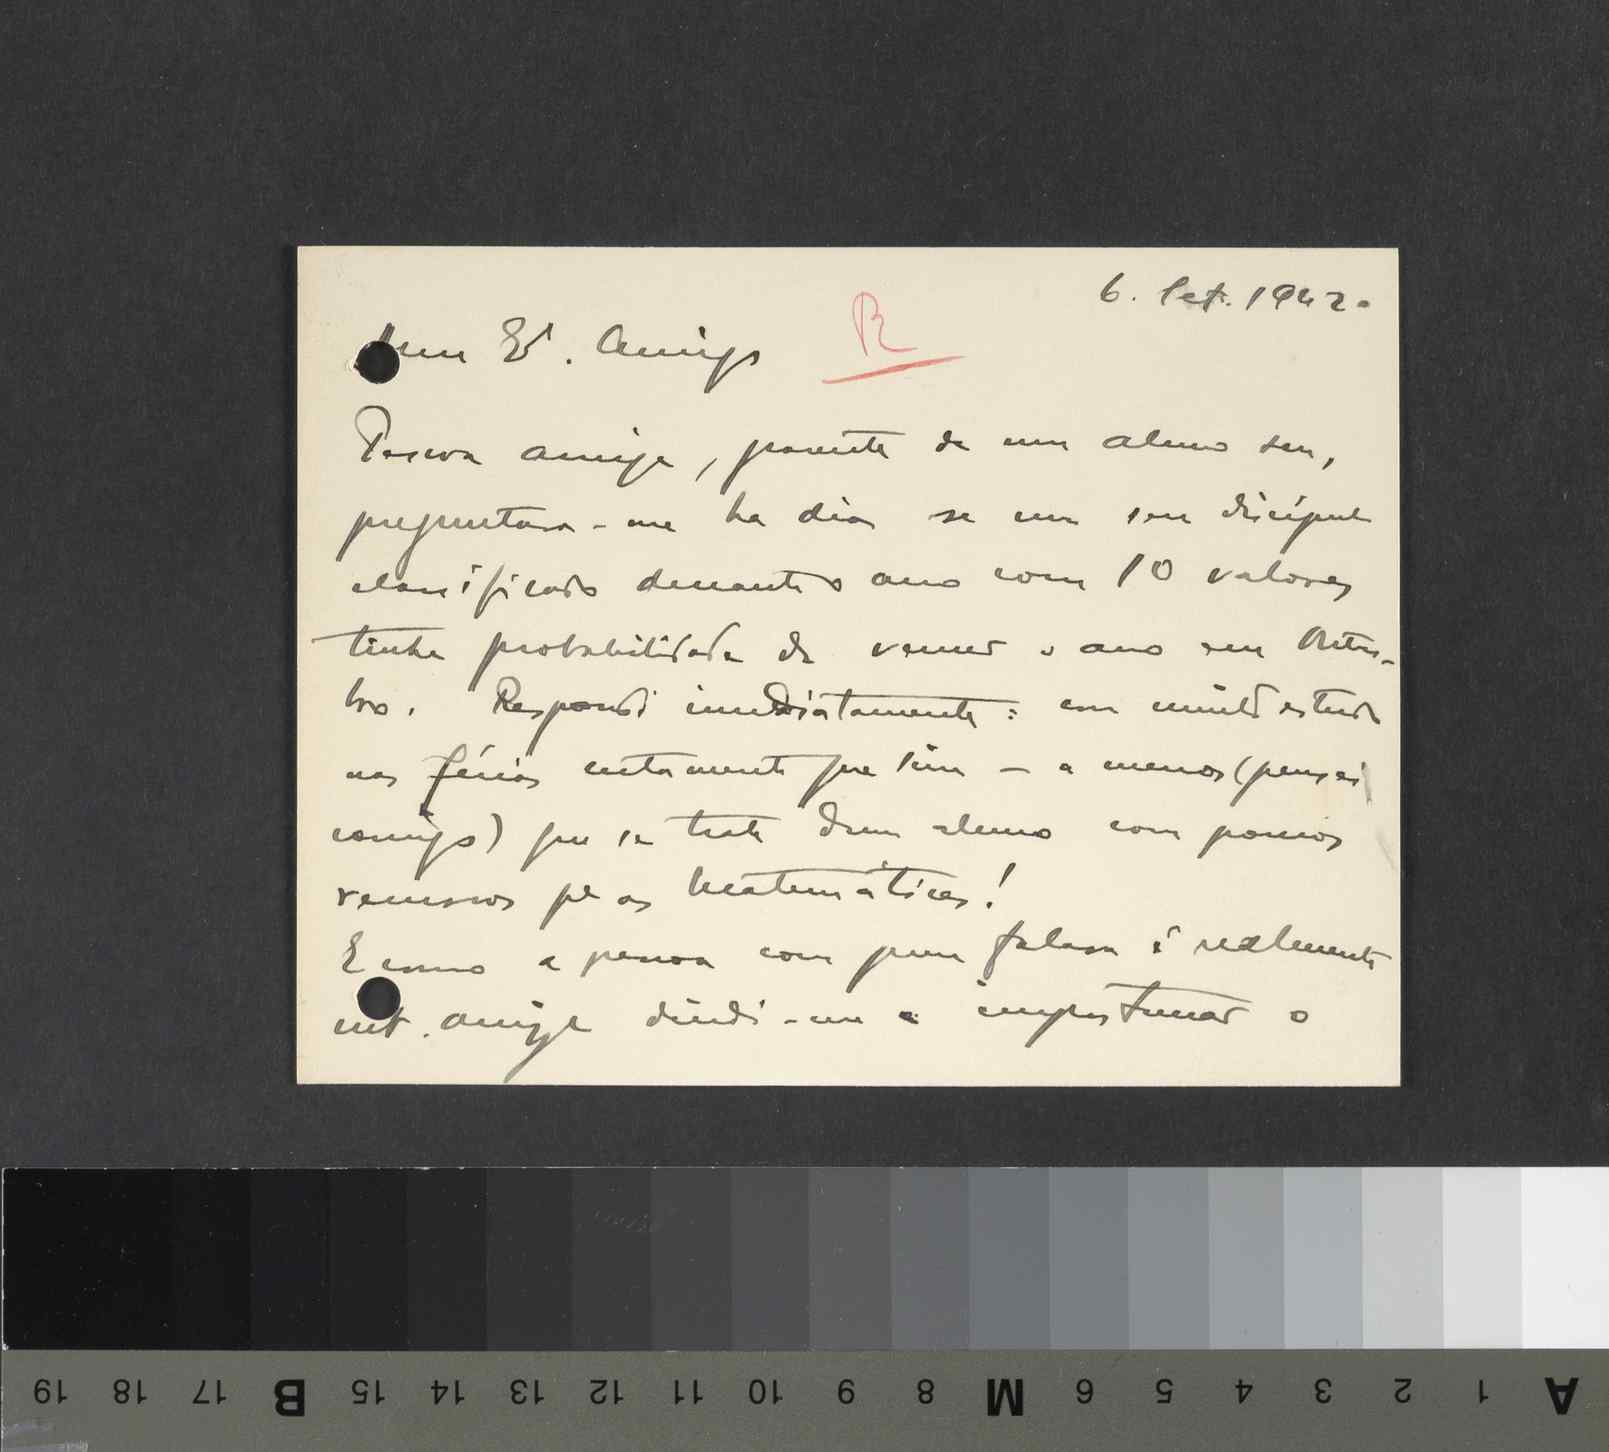 6. Set. 1942.
Meu Exº. Amigo
R
Pessoa amiga, parente de um aluno seu,
preguntava-me ha dias se um seu discipulo
classificado durante o ano com 10 valores
tinha probabilidade de vencer o ano em Outu-
bro. Respondi imediatamente: com muito estudo
nas férias certamente que sim - a menos (pensei
comigo) que se trate dum aluno com poucos
recursos pª as Matemáticas!
E como a pessoa com quem falava é realmente
mt. amiga decidi-me a importunar o
19 18 17 B 15 14 13 12 11 10 9 8 M 6 5 4 3 2 1 A